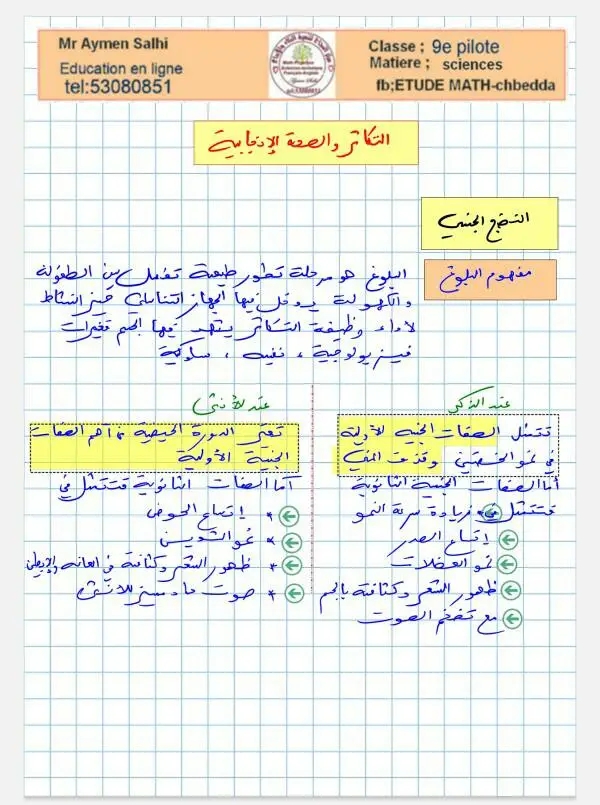 Mr Aymen Salhi
Education en ligne
tel:53080851
Classe ; 9e pilote
Matiere ; sciences
fb;ETUDE MATH-chbedda
التكاثر والصحة الإنجابية
النضج الجنسي
مفهوم البلوغ
البلوغ هو مرحلة تطور طبيعية تفصل بين الطفولة
والكهولة يدخل فيها الجهاز التناسلي حيز النشاط
لأداء وظيفة التكاثر يشهد فيها الجسم تغيرات
فيزيولوجية ، نفسية ، سلوكية
عند الذكر
تتمثل الصفات الجنسية الأولية
في نمو الخصيتين وقذف المني
أما الصفات الجنسية الثانوية
فتتمثل في زيادة سرعة النمو
إتساع الصدر
نمو العضلات
ظهور الشعر وكثافته بالجسم
مع تضخم الصوت
عند الأنثى
تعتبر الدورة الحيضية من أهم الصفات
الجنسية الأولية
أما الصفات الثانوية فتتمثل في
* إتساع الحوض
* نمو الثديين
* ظهور الشعر وكثافته في العانة والإبطين
* صوت حاد مميز للأنثى